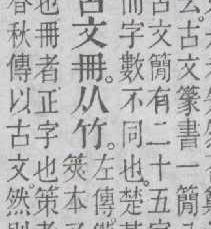 云。古文篆書一簡八
古文簡有二十五字
而字數不同也。楚
古文冊。从竹。左傳。
筴本又
也冊者正字也策者
春秋傳以古文。然則